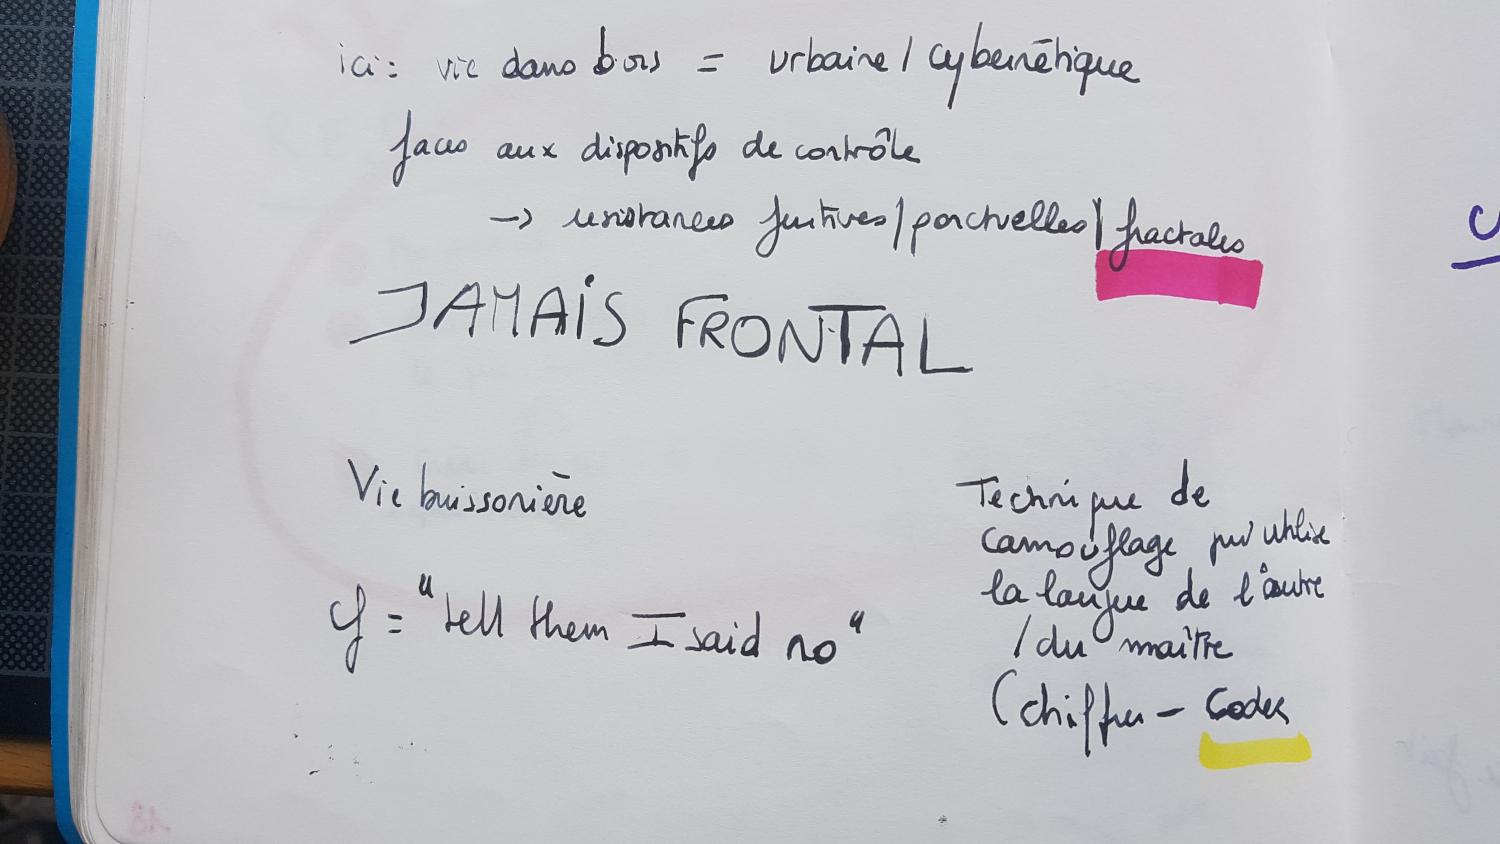 ici: vie dans bois = urbaine / cybernétique
faces aux dispositifs de contrôle
→ resistances furtives / ponctuelles / fractales
JAMAIS FRONTAL
Vie buissonière
cf = "tell them I said no"
Technique de
camouflage qui utilise
la langue de l'autre
/ du maître
(chiffrer - coder
18